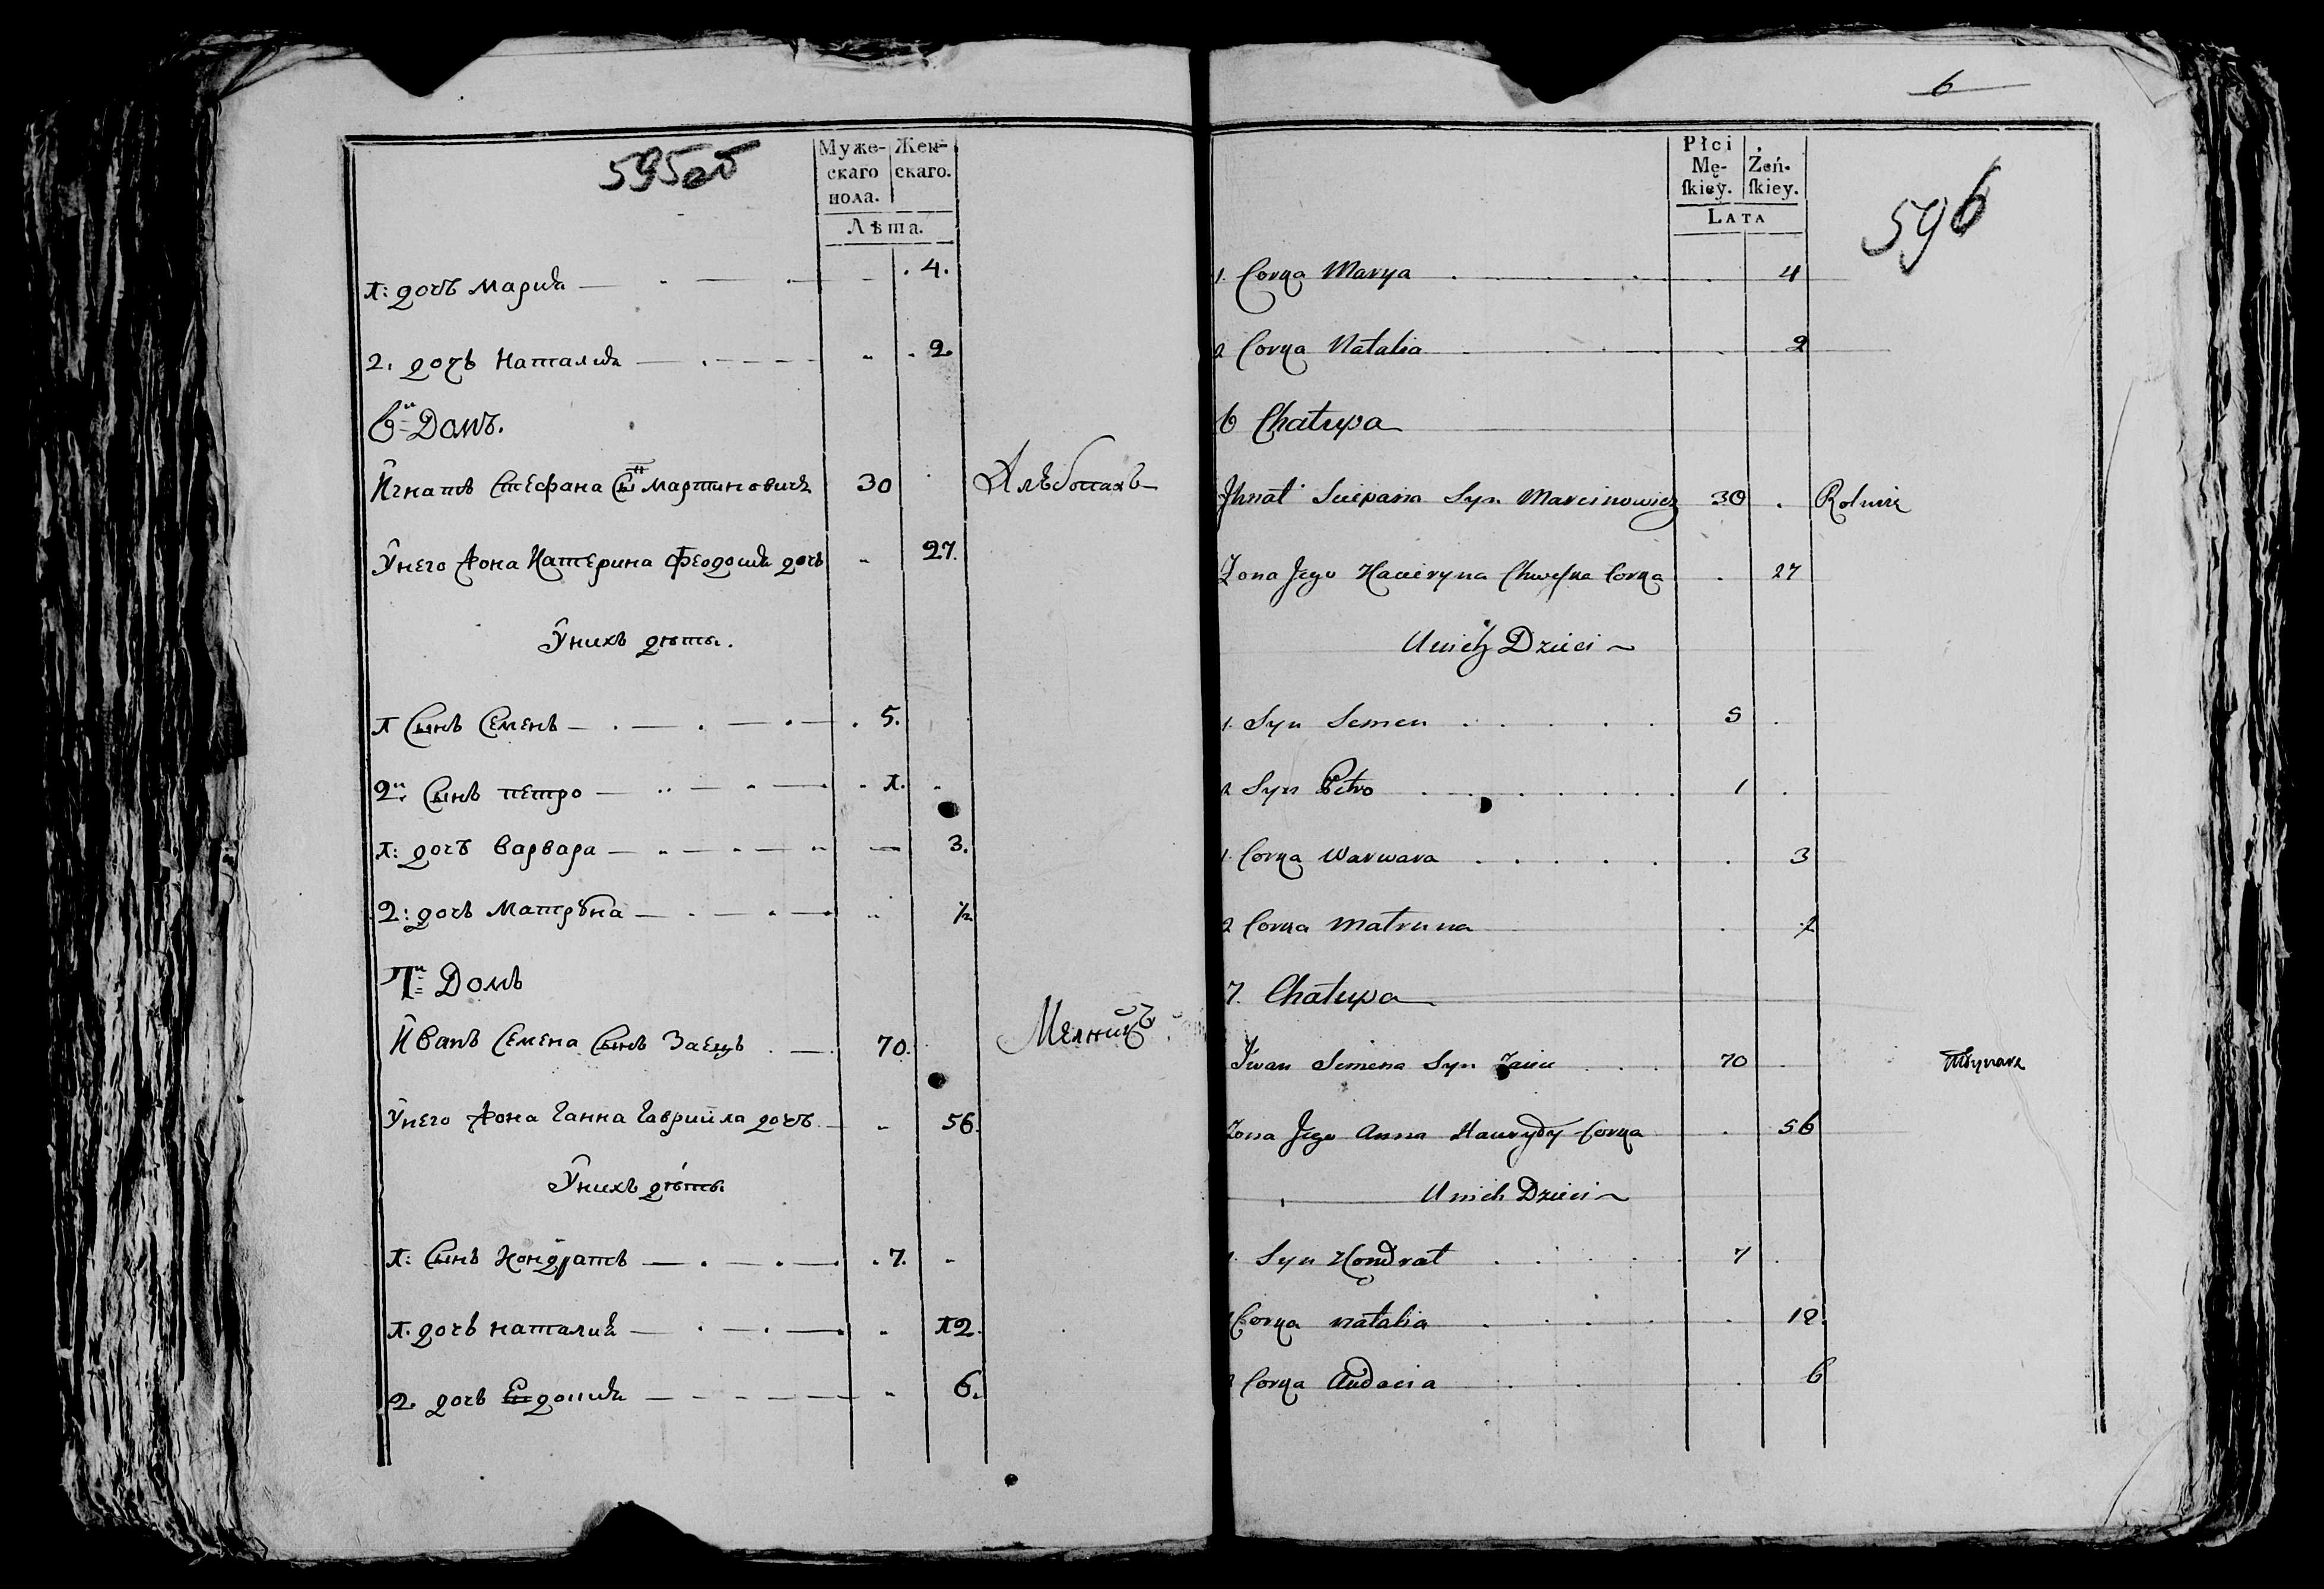 595об
Муже-
скаго
пола.
Жен-
скаго.
Лѣта.
1: дочъ Мария — . — . — . 4.
2. дочъ Наталия — . — . 2.
6й Домъ.
Игнатъ Стефана Сынъ Мартиновичъ 30 Хлѣбопахъ
Унего Жона Катерина Феодосия дочъ 27.
Унихъ дѣти.
1 Сынъ Семенъ — . — . 5.
2й Сынъ петро — . — . 1.
1: дочъ варвара — . — . 3.
2: дочъ Матрѣна — . — . ½
7й Домъ
Иванъ Семена Сынъ Заецъ . — 70. Мелникъ
Унего Жона Ганна Гаврийла дочъ — 56.
Унихъ дѣти
1: Сынъ Кондратъ — . — . 7.
1. дочъ наталия — . — . 12.
2. дочъ Евдошия — — — 6.
6
Płci
Mę-
ſkiey.
Żeń-
ſkiey.
LATA
596
1. Corka Marya . . . 4
2 Corka Natalia . . . 2
6 Chałupa
Jhnat Sciepana Syn Marcinowicz 30 . Rolnik
Żona Jego Kacieryna Chwesko Corka . 27
Unich Dzieci ~
1. Syn Semen . . . 5 .
2 Syn Petro . . . 1 .
1. Corka Warwara . . . 3
2 Corka Matruna . ½
7. Chałupa
Iwan Semena Syn Zaiec . . . 70 . Młynarz
Zona Jego Anna Hawryły Corka . 56
Unich Dzieci ~
1. Syn Kondrat . . . 7 .
1 Corka natalia . . . 12.
2 Corka Audocia . . . 6